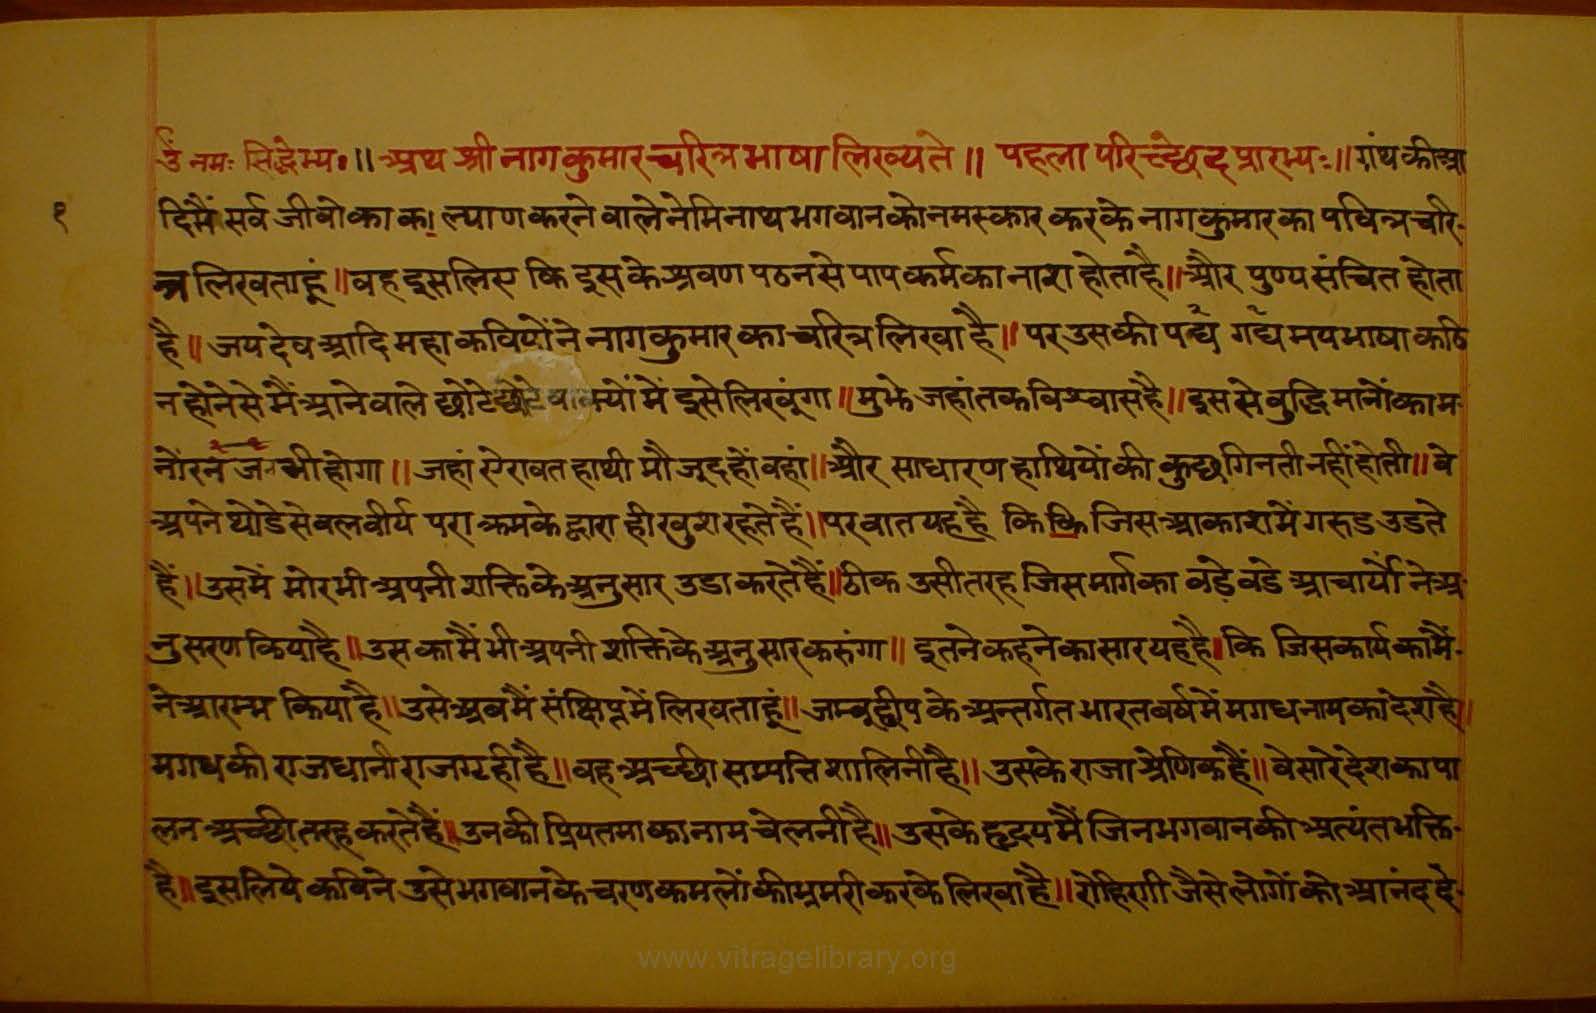 ॐ नमः सिद्धेभ्यः॥ अथ श्री नागकुमारचरित्र भाषा लिख्यते॥ पहला परिच्छेद प्रारभ्यः॥ ग्रंथ की आ
१
दिमैं सर्व जीवो का कल्याण करने वाले नेमिनाथ भगवान को नमस्कार करके नागकुमार का पवित्र चरि-
त्र लिखता हूं॥ वह इसलिए कि इसके श्रवण पठन से पाप कर्म का नाश होता है॥ और पुण्य संचित होता
है॥ जयदेव आदि महा कवियों ने नागकुमार का चरित्र लिखा है॥ पर उसकी पद्य गद्य मय भाषा कठि
न होने से मैं आने वाले छोटे छोटे वाक्यों में इसे लिखूंगा॥ मुझे जहां तक विश्वास है॥ इस से बुद्धिमानों का म-
नोंरन जन भी होगा॥ जहां ऐरावत हाथी मौजूद हों वहां॥ और साधारण हाथियों की कुछ गिनती नहीं होती॥ वे
अपने थोडे से बल वीर्य पराक्रम के द्वारा ही खुश रहते हैं॥ पर बात यह है कि कि जिस आकाश में गरुड उडते
हैं॥ उसमें मोर भी अपनी शक्ति के अनुसार उडा करते हैं॥ ठीक उसी तरह जिस मार्ग का बड़े बडे आचार्यों ने अ-
नुसरण किया है॥ उस का मैं भी अपनी शक्ति के अनुसार करुंगा॥ इतने कहने का सार यह है। कि जिस कार्य का मैं-
ने आरम्भ किया है॥ उसे अब मैं संक्षिप्त में लिखता हूं॥ जम्बूद्वीप के अन्तर्गत भारतवर्ष में मगध नाम का देश है॥
मगध की राजधानी राजगृही है॥ वह अच्छी सम्पत्ति शालिनी है॥ उसके राजा श्रेणिक हैं॥ वे सारे देश का पा
लन अच्छी तरह करते हैं॥ उनकी प्रियतमा का नाम चेलनी है॥ उसके हृदय मैं जिन भगवान की अत्यंत भक्ति-
है॥ इसलिये कवि ने उसे भगवान के चरण कमलों की भ्रमरी करके लिखा है॥ रोहिणी जैसे लोगों को आनंद दे-
www.vitragelibrary.org